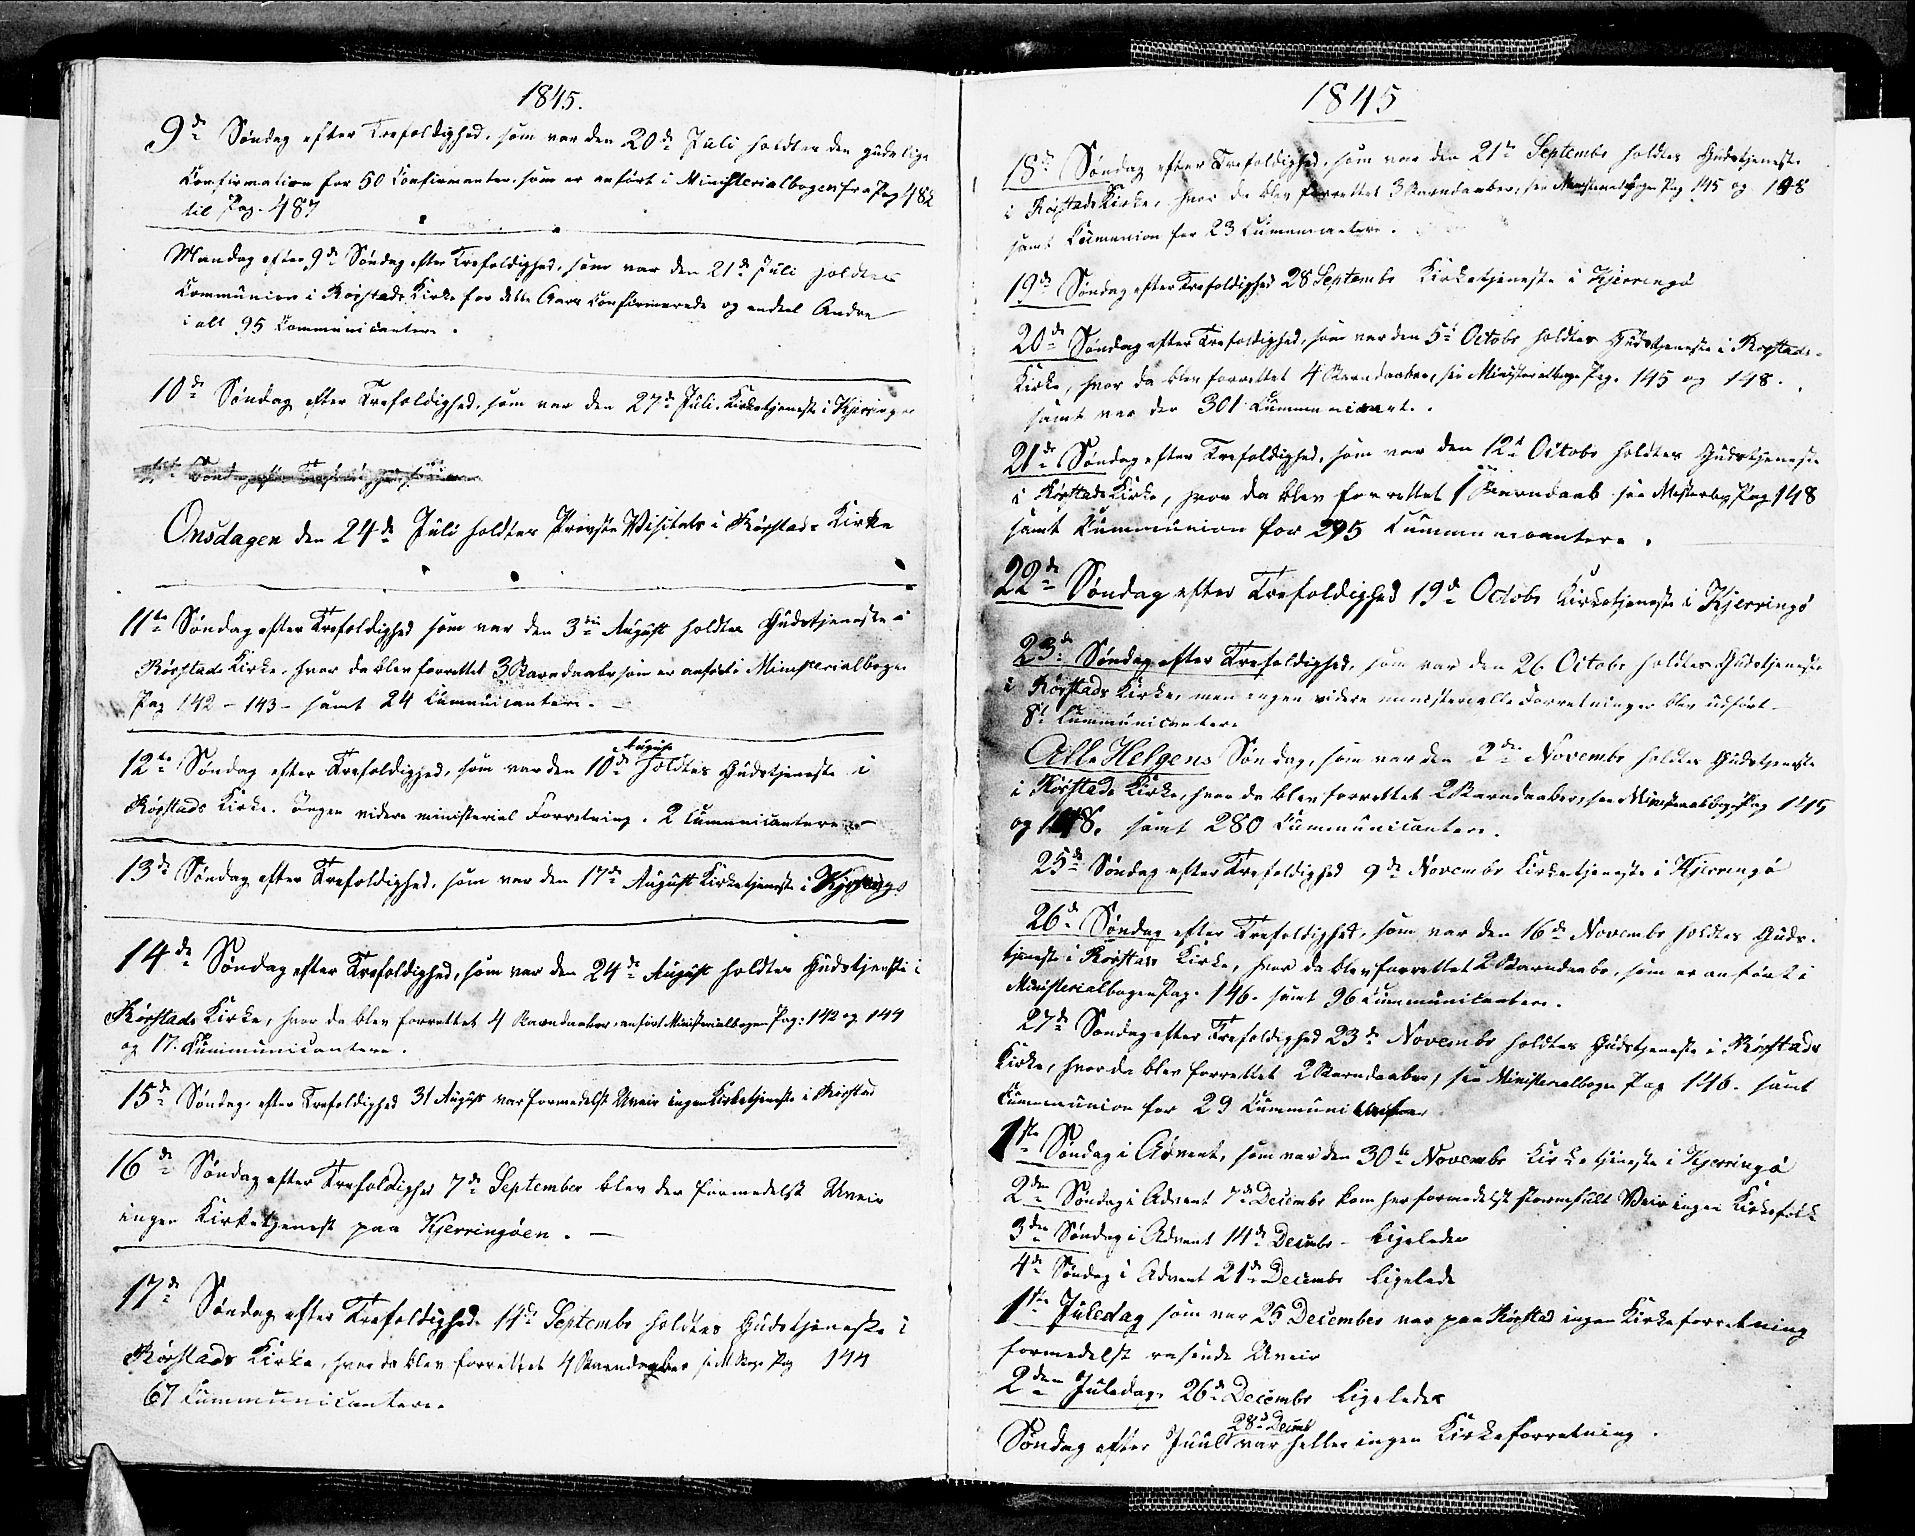 1845.
9de Søndag efter Trefoldighed, som var den 20de Juli holdtes den gudelige
Confirmation for 50 Confirmanter, som er anført i Ministerialbogen fra Pag 482
til Pag. 487
Mandag efter 9de Søndag efter Trefoldighed, som var den 21de Juli holdtes
Communion i Rørstads Kirke for dette Aars Confirmerede og endeel Andre
i alt 95 Communicantere.
10de Søndag efter Trefoldighed, som var den 27de Juli. Kirketjeneste i Kjerringø
Søndag efter Trefoldighed, som
Onsdagen den 24de Juli holdtes Provste Visitats i Rørstads Kirke
11te Søndag efter Trefoldighed som var den 3die August holdtes Gudstjeneste i
Rørstads Kirke, hvor da blev forrettet 3 Barndaab, som er anført i Ministerialbogen
Pag 142 - 143 - samt 24 Cummunicantere. -
12te Søndag efter Trefoldighed, som var den 10de August holdtes Gudstjeneste i
Rørstads Kirke. Ingen videre ministerial Forretning. 2 Cumunicantere -
13de Søndag efter Trefoldighed, som var den 17de August Kirketjeneste i Kjerringø
14de Søndag efter Trefoldighed, som var den 24de August holdtes Gudstjeneste i
Rørstads Kirke, hvor da blev forrettet 4 Barndaaber, anført Ministerialbogen Pag: 142 og 144
og 17. Cummunicantere.
15de Søndag efter Trefoldighed 31 August var formedelst Uveir ingen Kirketjeneste i Rørstad
16de Søndag efter Trefoldighed 7de September blev der formedelst Uveir
ingen Kirketjenest paa Kjerringøen. -
17de Søndag efter Trefoldighed 14de Septembr holdtes Gudstjeneste i
Rørstads Kirke, hvor da blev forrettet 4 Barndaaber se M Bog Pag 144
67 Cummunicantere.
1845
18de Søndag efter Trefoldighed, som var den 21de Septembr holdtes Gudstjeneste
i Rørstads Kirke, hvor da blev forrettet 3 Barndaaber, see Ministerialbogen Pag 145 og 148
samt Cumunion for 23 Cumunicantere.
19de Søndag efter Trefoldighed 28 Septembr Kirketjeneste i Kjerringø
20de Søndag efter Trefoldighed, som var den 5te Octobr holdtes Gudstjeneste i Rørstads
Kirke, hvor da blev forrettet 4 Barndaaber, see Ministerialbogen Pag. 145 og 148.
samt var der 301 Cummunicant.
21de Søndag efter Trefoldighed, som var den 12te Octobr holdtes Gudstjeneste
i Rørstads Kirke, hvor da blev forrettet 1 Barndaab see Pag 148
samt Cummunion for 295 Cummunicantere.
22de Søndag efter Trefoldighed 19de Octobr Kirketjeneste i Kjerringø
23de Søndag efter Trefoldighed, som var den 26 Octobr holdtes Gudstjeneste
i Rørstads Kirke, men ingen videre ministerielle Forretninger blev udført.
8te Cummunicantere
Alle Helgens Søndag, som var den 2den Novembr holdtes Gudstjeneste
i Rørstads Kirke, hvor da blev forrettet 2 Barndaaber, see Ministerialbog Pag 145
og 148. samt 280 Cummunicantere.
25de Søndag efter Trefoldighed 9de Novembr Kirketjeneste i Kjerringø
26de Søndag efter Trefoldighed, som var den 16de Novembr holdtes Guds-
tjeneste i Rørstads Kirke, hvor da blev forrettet 2 Barndaab, som er anført i
Ministerialbogen Pag. 146. samt 96 Cummunicantere.
27de Søndag efter Trefoldighed 23de Novembr holdtes Gudstjeneste i Rørstads
Kirke, hvor da blev forrettet 2 Barndaaber, see Ministerialbogen Pag 146. samt
Cummunion for 29 Cummunicanter
1ste Søndag i Advent, som var den 30te Novembr Kirketjeneste i Kjerringø
2den Søndag i Advent 7de Decembr kom her formedelst stormfult Veir ingen Kirkefolk
3die Søndag i Advent 14de Decembr - Ligeledes
4de Søndag i Advent 21de Decembr Ligelede
1ste Juledag som var 25 December var paa Rørstad ingen Kirkeforretning
formedelst rasende Uveir
2den Juledag. 26de Decembr Ligeledes
Søndag efter Juul 28de Decembr var heller ingen Kirkeforretning.